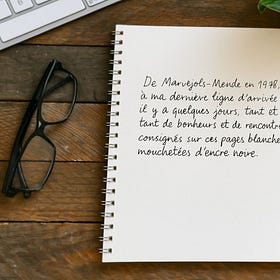 De Marvejols-Mende en 1978,
à ma dernière ligne d'arrivée
il y a quelques jours, tant et
tant de bonheurs et de rencontre
consignés sur ces pages blanche
mouchetées d'encre noire.